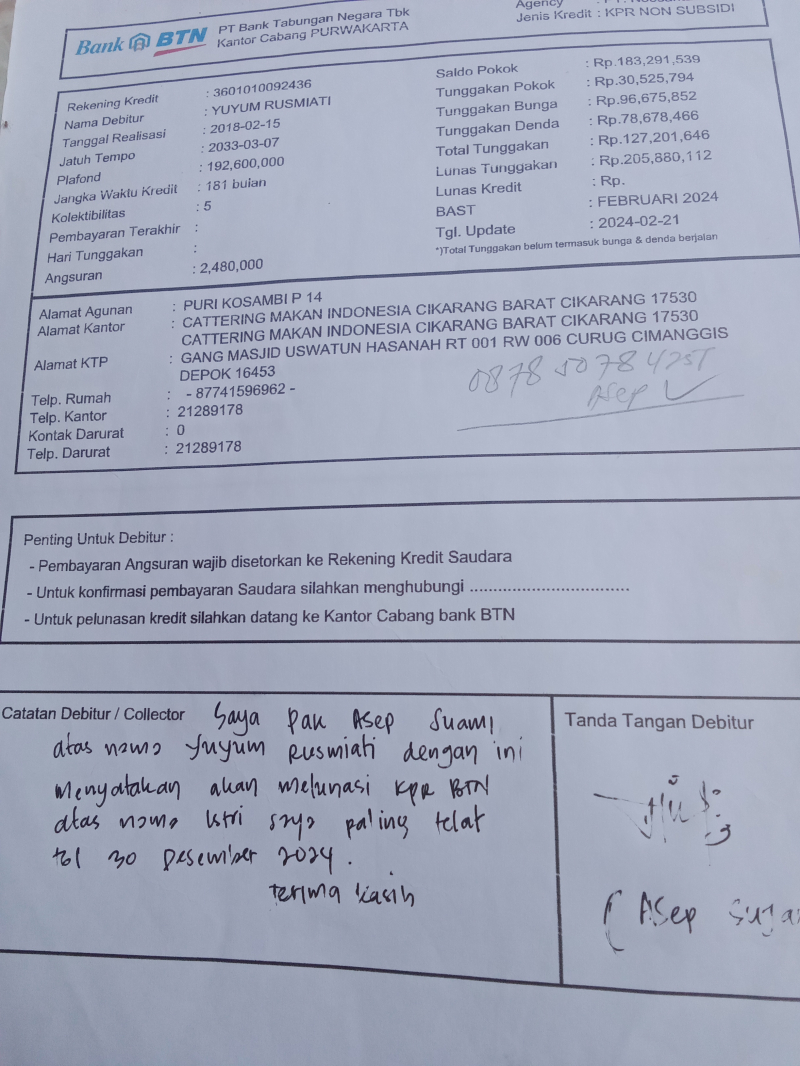 Bank BTN PT Bank Tabungan Negara Tbk
Kantor Cabang PURWAKARTA
Agency :
Jenis Kredit : KPR NON SUBSIDI
Rekening Kredit : 3601010092436
Nama Debitur : YUYUM RUSMIATI
Tanggal Realisasi : 2018-02-15
Jatuh Tempo : 2033-03-07
Plafond : 192,600,000
Jangka Waktu Kredit : 181 bulan
Kolektibilitas : 5
Pembayaran Terakhir :
Hari Tunggakan :
Angsuran : 2,480,000
Saldo Pokok : Rp.183,291,539
Tunggakan Pokok : Rp.30,525,794
Tunggakan Bunga : Rp.96,675,852
Tunggakan Denda : Rp.78,678,466
Total Tunggakan : Rp.127,201,646
Lunas Tunggakan : Rp.205,880,112
Lunas Kredit : Rp.
BAST : FEBRUARI 2024
Tgl. Update : 2024-02-21
*)Total Tunggakan belum termasuk bunga & denda berjalan
Alamat Agunan : PURI KOSAMBI P 14
Alamat Kantor : CATTERING MAKAN INDONESIA CIKARANG BARAT CIKARANG 17530
CATTERING MAKAN INDONESIA CIKARANG BARAT CIKARANG 17530
Alamat KTP : GANG MASJID USWATUN HASANAH RT 001 RW 006 CURUG CIMANGGIS
DEPOK 16453
Telp. Rumah : - 87741596962 -
Telp. Kantor : 21289178
Kontak Darurat : 0
Telp. Darurat : 21289178
Asep
Penting Untuk Debitur :
- Pembayaran Angsuran wajib disetorkan ke Rekening Kredit Saudara
- Untuk konfirmasi pembayaran Saudara silahkan menghubungi .................................
- Untuk pelunasan kredit silahkan datang ke Kantor Cabang bank BTN
Catatan Debitur / Collector Saya pak Asep Suami
atas nama Yuyum Rusmiati dengan ini
menyatakan akan melunasi KPR BTN
atas nama istri saya paling telat
tgl 30 Desember 2024.
terima kasih
Tanda Tangan Debitur
( Asep